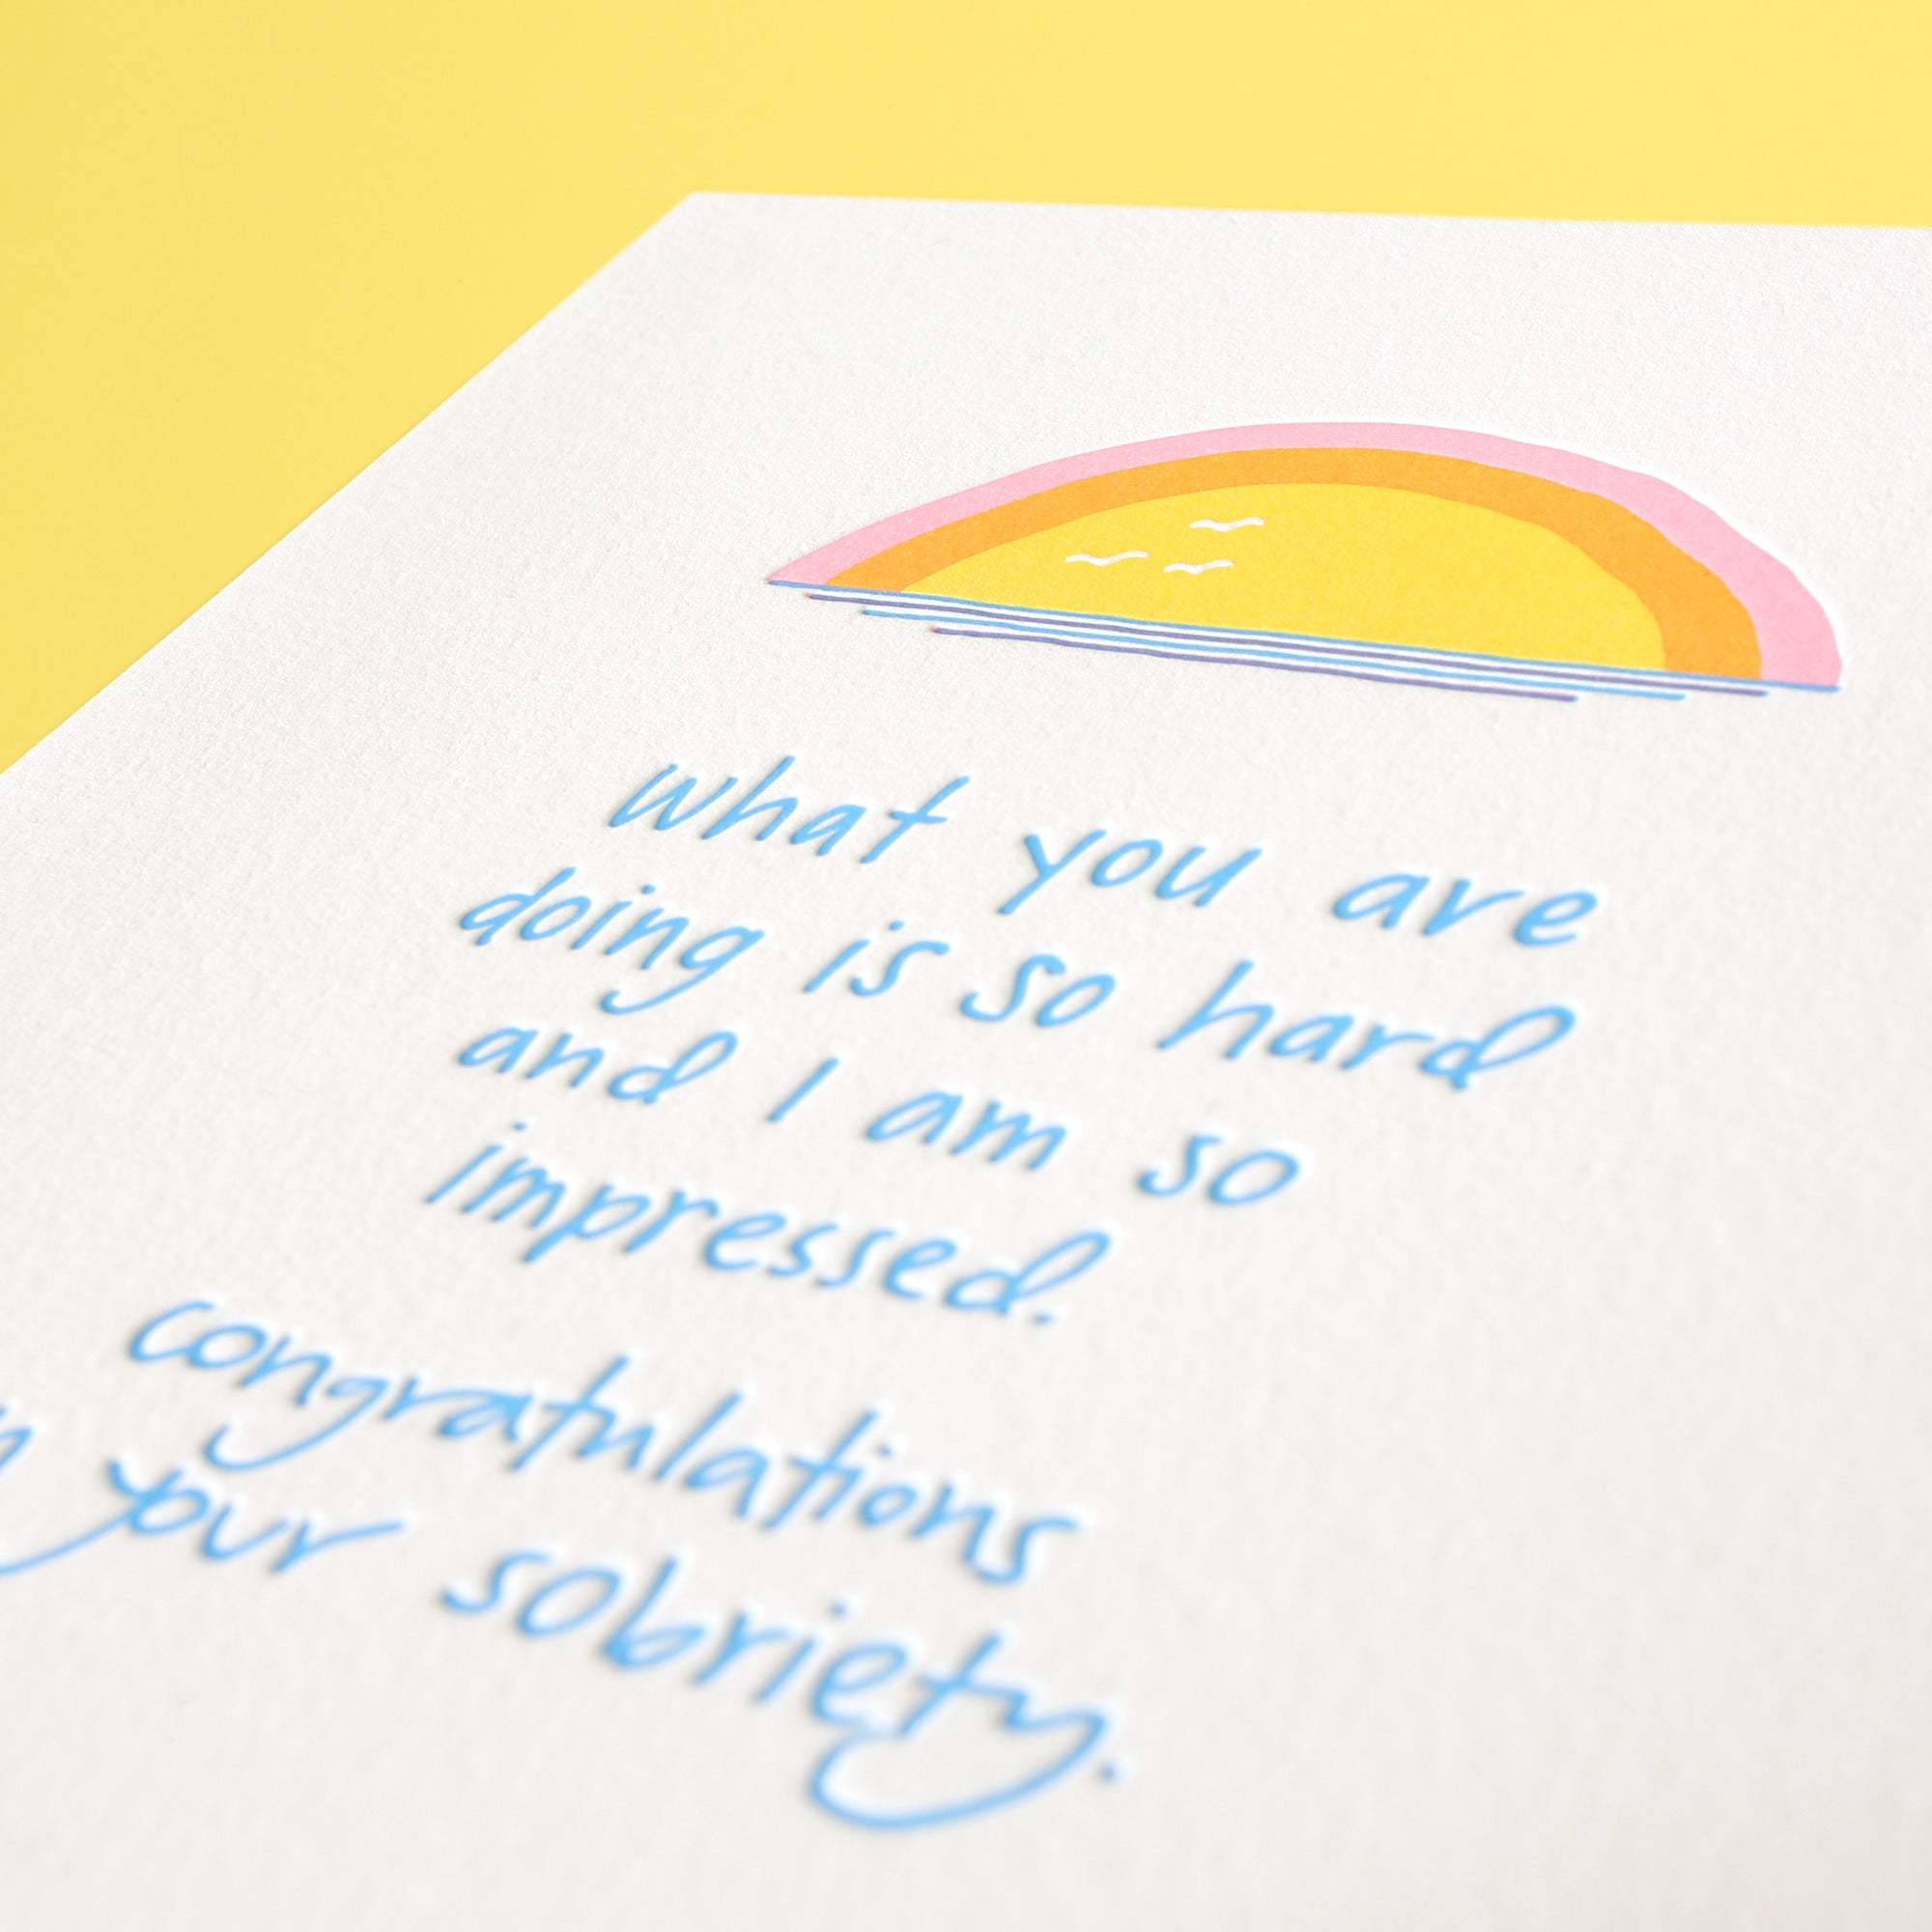 what you are
doing is so hard
and I am so
impressed.
congratulations
your sobriety.